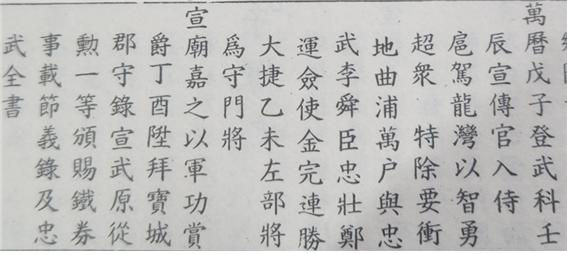 萬曆戊子登武科壬
辰宣傳官入侍
扈駕龍灣以智勇
超衆 特除要衝
地曲浦萬户與忠
武李舜臣忠壯鄭
運僉使金完連勝
大捷乙未左部將
爲守門將
宣廟嘉之以軍功賞
爵丁酉陞拜寶城
郡守錄宣武原從
勳一等頒賜鐵券
事載節義錄及忠
武全書